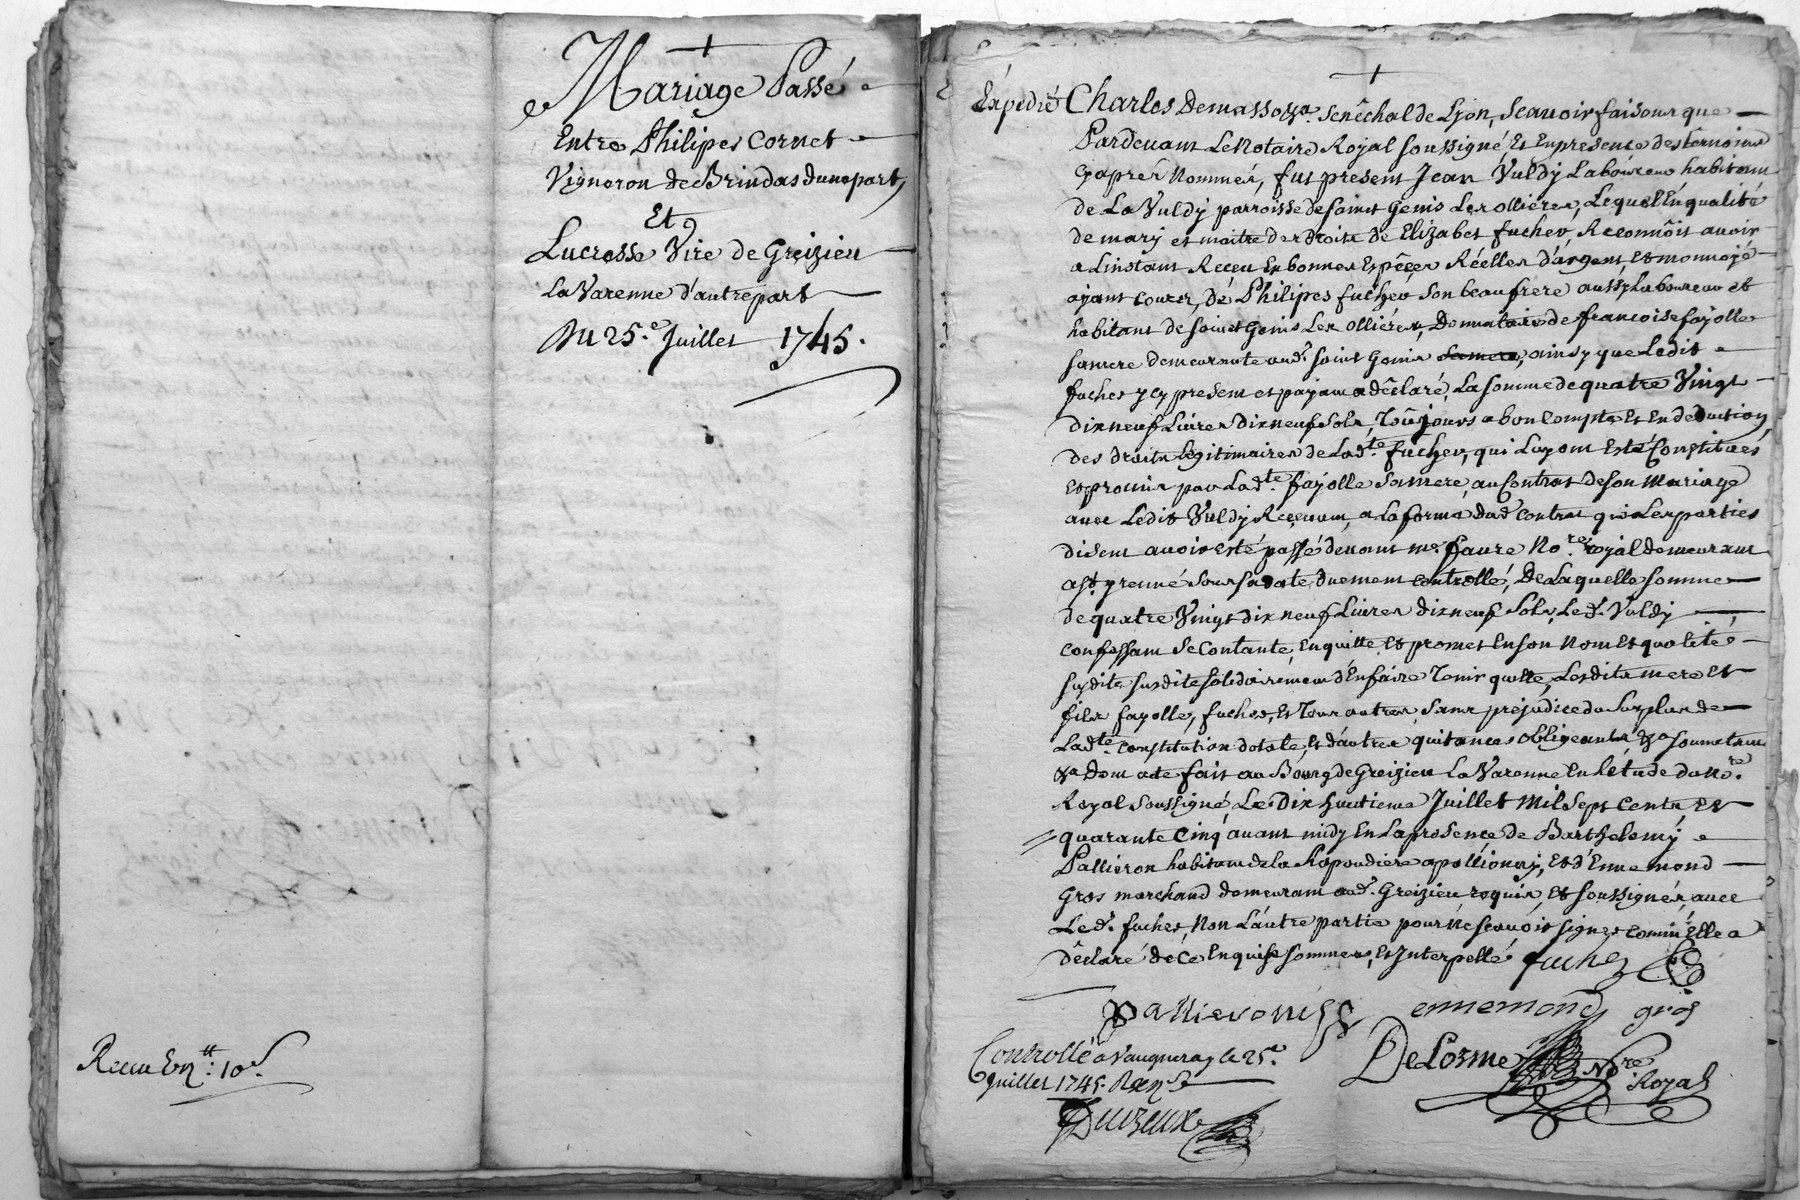 Mariage Passé
Entre Philipes Cornet
Vigneron de Brindas dune part,
Et
Lucresse Vire de Greizieu
La Varenne d'autre part
Du 25.e Juillet 1745.
Receu
10s.
Expedié
Charles Demasso &a. Senêchal de Lyon, Scauoir faisons que
Pardeuant Le Notaire Royal soussigné Et En presence des temoins
cy aprés Nommés, fut present Jean Vuldy Laboureur habitant
de La Vuldy parroisse de saint Genis Les ollieres, Lequel En qualité
de mary et maitre des droits de Elizabet fucher, Reconnôit auoir
a Linstant Receu En bonnes Espêçes Réelles d'argent, et monnoyé
ayant cours, de Philipes fucher son beaufrere aussy Laboureur et
habitant de saint Genis Les ollieres, Donnataire de francoise fayolle
sa mere demeurante aud. saint Genis ainsy que Ledit
fucher ycy present et payant a dêclaré, La somme de quatre Vingt
dixneuf Liures dixneuf sols, Toûjours a bon Compte Et En deduction
des droits Légitimaires de Lad.te fucher, qui Luy ont Esté Constitués
et promis par Lad.te fayolle sa mere, au Contrat de son Mariage
auec Ledit Vuldy Receuant, a La forme dud. contrat que Les parties
disent auoir Esté passé deuant me. faure No.re royal demeurant
sous sa date, duement controllé, De Laquelle somme
de quatre Vingt dixneuf Liures dixneuf Sols, Le d. Vuldy
confessant se Contante, En quitte Et promet En son Nom Et qualité
susdite solidairement d'En faire Tenir quitte, Lesdits mere et
fils fayolle, fucher, Et Tous autres, sans préjudice du surplus de
Lad.te constitution dotale, Et d'autres quitances obligeants &a soumettant
&a dont acte fait au Bourg de Greizieu La Varenne En L'étude du No.re
Royal soussigné, Le Dix huitieme Juillet Mil Sept Cents Et
quarante Cinq auant midy En La presence de Barthelemy
Pallieron habitant de la a pollionay, Et d'Ennemond
Gros marchand demeurant aud. Greizieu requis, Et soussignés, auec
Le d. fucher, Non L'autre partie pour ne scauoir signer comm'Elle a
dêclaré de ce Enquise sommée, Et Interpellé
fucher
Pallieron
ennemond gros
Controllé a Vaugneray le 25e.
Juillet 1745.
DeLorme No.re
Royal